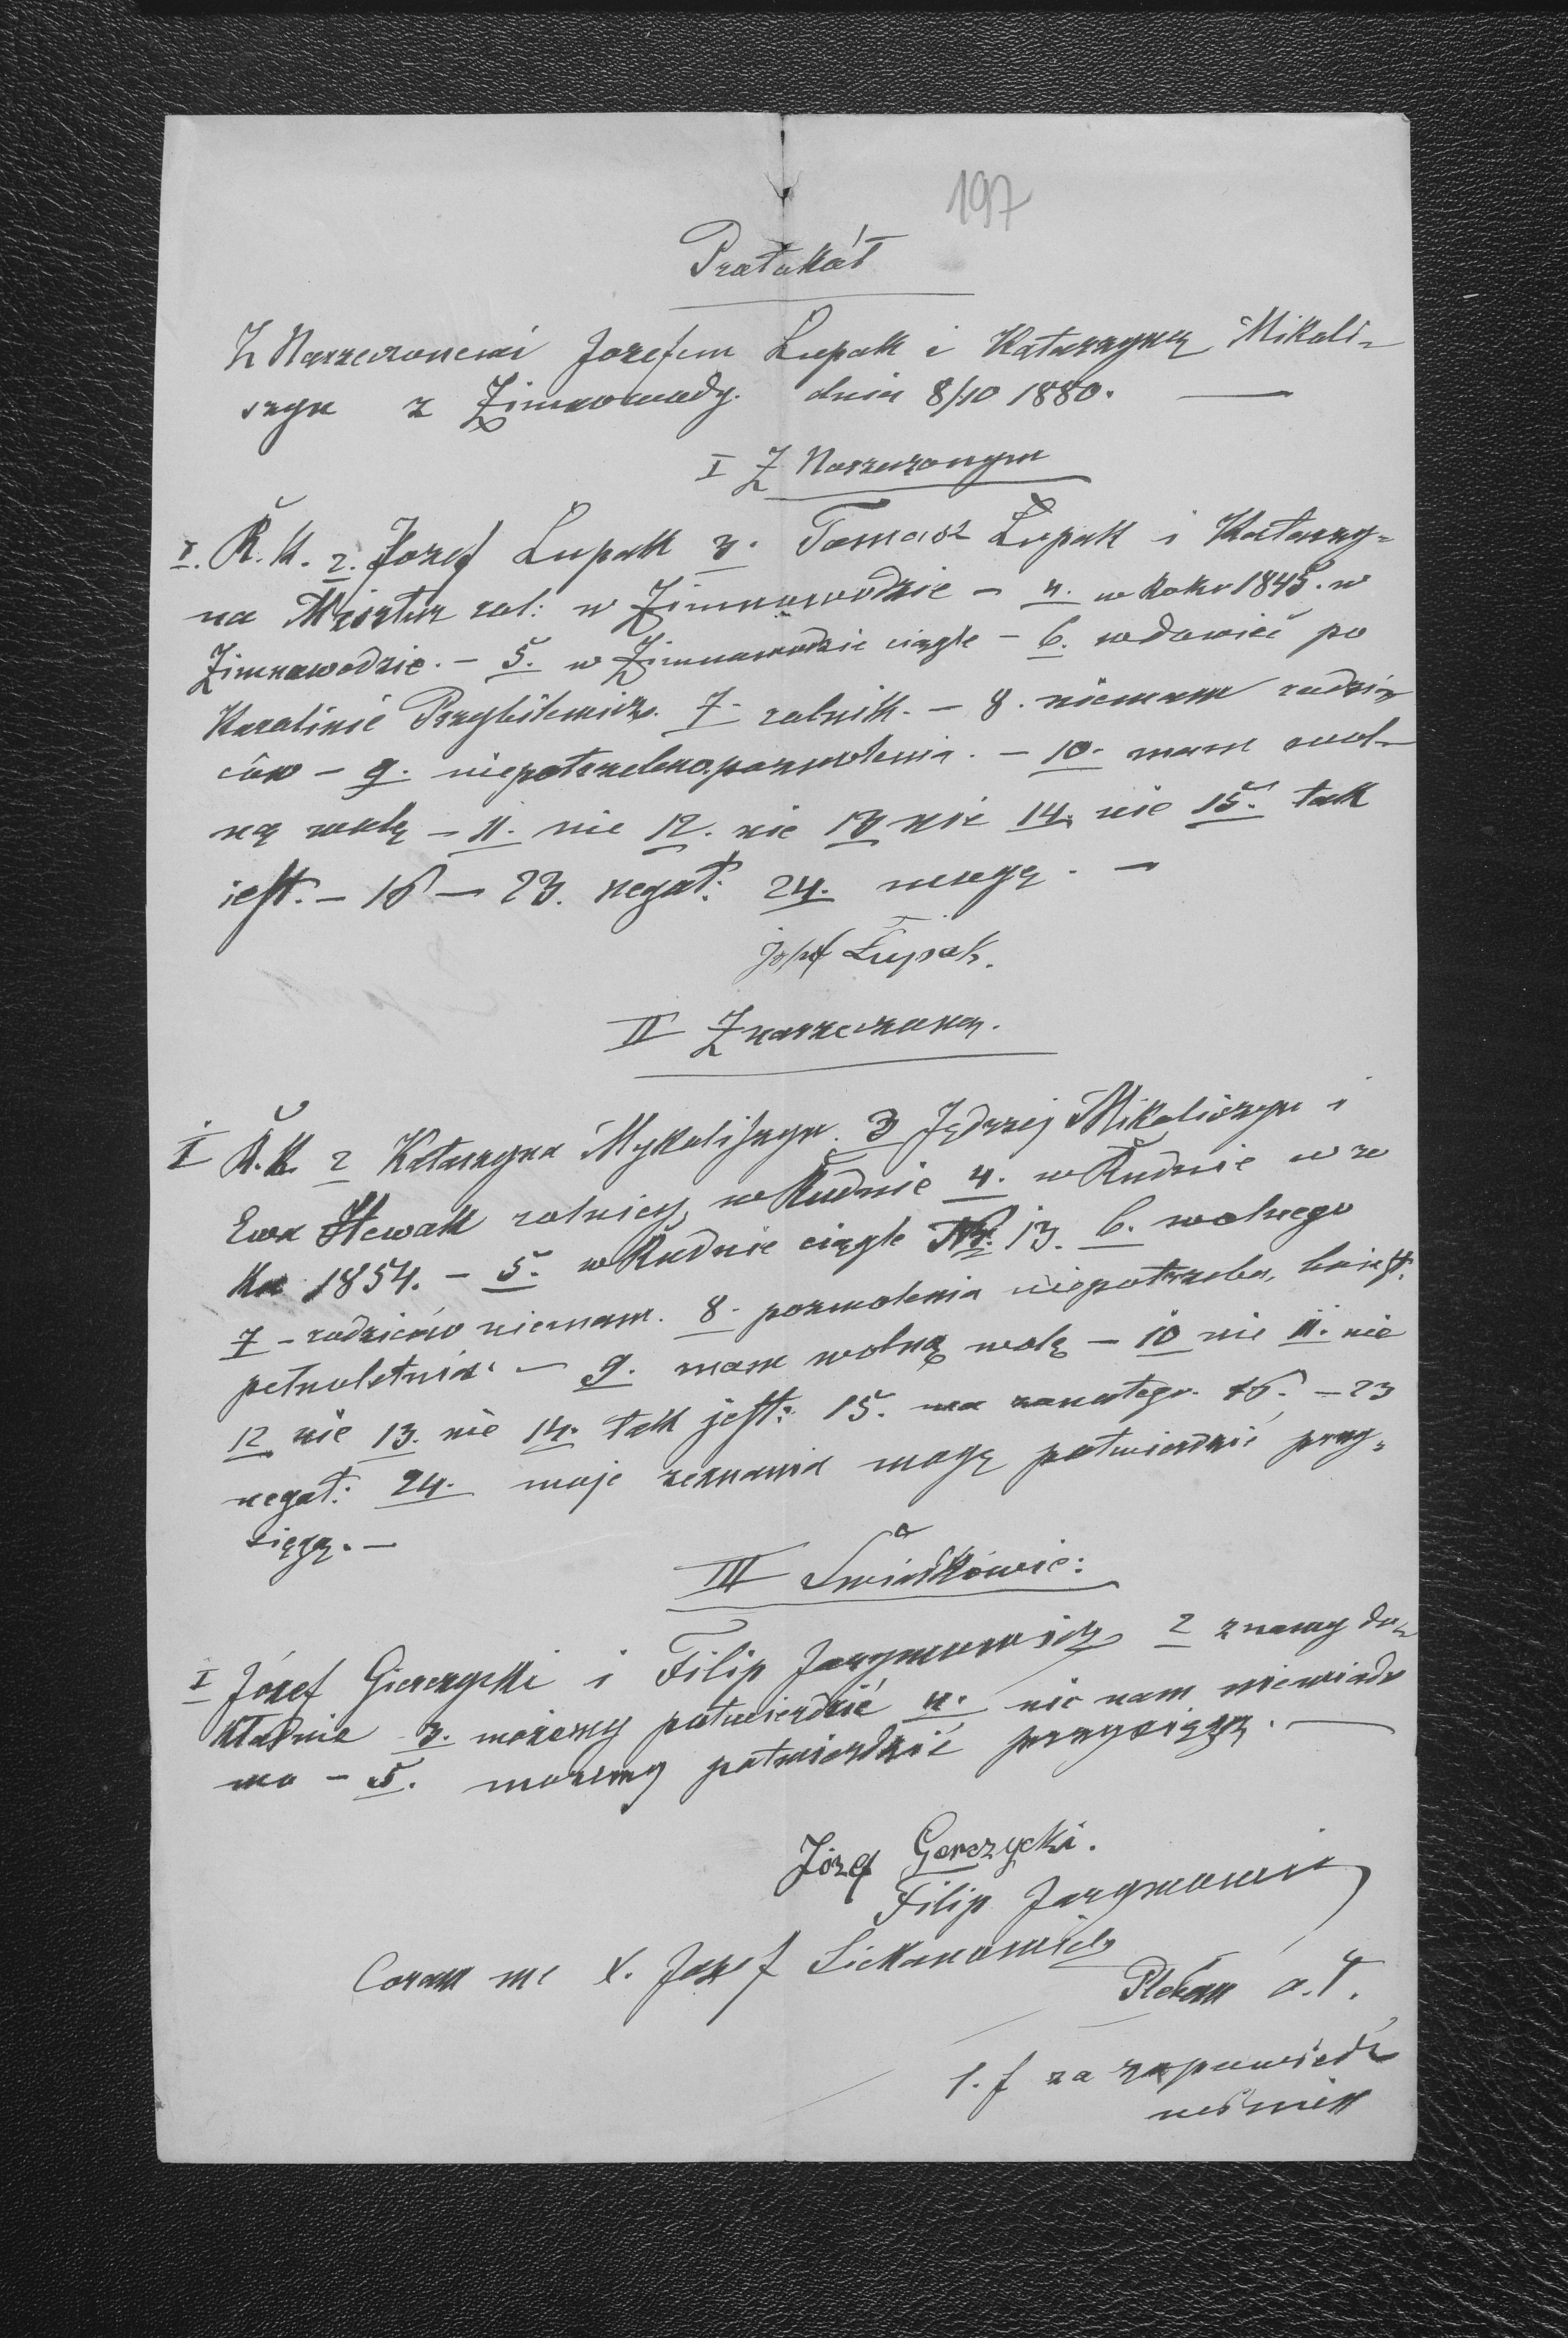 197
Protokół
Z Narzeczonemi Jozefem Łupak i Katarzyną Mikoli-
szyn z Zimnowody. dnia 8/10 1880. —
I Z Narzeczonym
I. R. K. 2. Jozef Łupak 3. Tomasz Łupak i Katarzy-
na rol: w Zimnowodzie – 4. w roku 1845. w
Zimnowodzie. – 5. w Zimnowodzie ciągle – 6. wdowiec po
Karolinie Przybilewicz. 7. rolnik. – 8. niemam rodzi-
ców – 9. niepotrzebno pozwolenia. – 10. mam wol-
ną wolę – 11. nie 12. nie 13 nie 14. nie 15. tak
jest. – 16 – 23. negat: 24. mogę. –
Józef Łupak.
II Z narzeczoną.
I R. K. 2 Katarzyna Mykoliszyn. 3 Jędrzej Mikoliszyn i
Ewa rolnicy w Rudnie 4. w Rudnie w ro
ku 1854. – 5. w Rudnie ciągle 13. 6. wolnego
7 – rodziców niemam. 8. pozwolenia niepotrzeba, bo jest.
pełnoletnia. – 9. mam wolną wolę – 10 nie 11. nie
12 nie 13. nie 14. tak jest: 15. 16. – 23
negat: 24. moje zeznania mogę potwierdzić przy-
sięgą. –
III Świadkowie:
I Józef Gierczycki i Filip Jarymowicz 2 znamy do-
kładnie 3. możemy potwierdzić 4. nic nam niewiado
mo – 5. możemy potwierdzić przysięgą. —
Józef Gerczycki.
Filip Jarymowicz
Coram me X. Jozef Sickanowicz
Pleban o. ł.
1. f za zapowiedź